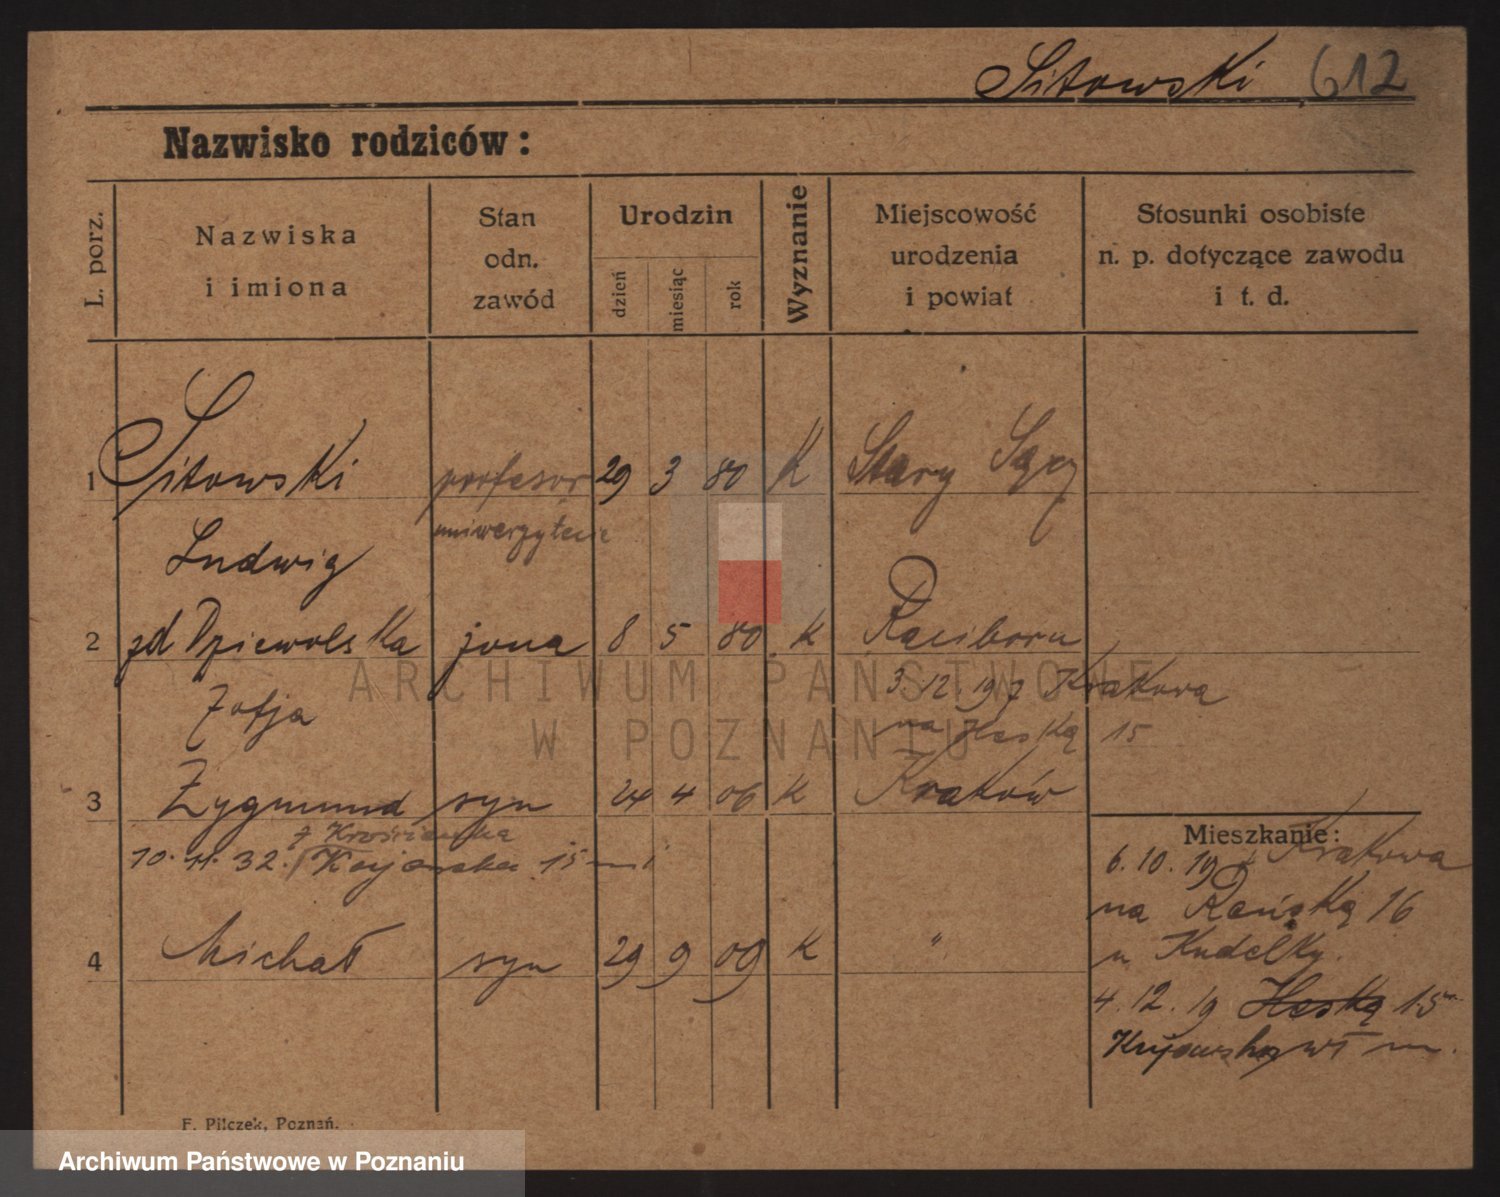 Sitowski 612
Nazwisko rodziców:
L. porz.
Nazwiska
i imiona
Stan
odn.
zawód
Urodzin
dzień
miesiąc
rok
Wyznanie
Miejscowość
urodzenia
i powiat
Stosunki osobiste
n. p. dotyczące zawodu
i t. d.
1 Sitowski profesor 29 3 80 K Stary Sącz
uniwerzytecie
Ludwig
2 zd Dziewolska żona 8 5 80 K
Zofja
3. 12. 19 z Krakowa
na 15
3 Zygmund syn 24 4 06 K Kraków
10. 11. 32. 15
Mieszkanie:
6. 10. 19 z Krakowa
na 16
u Kudelky.
4 Michał syn 29 9 09 K "
4. 12. 19 15
F. Pilczek, Poznań.
ARCHIWUM PAŃSTWOWE
W POZNANIU
Archiwum Państwowe w Poznaniu